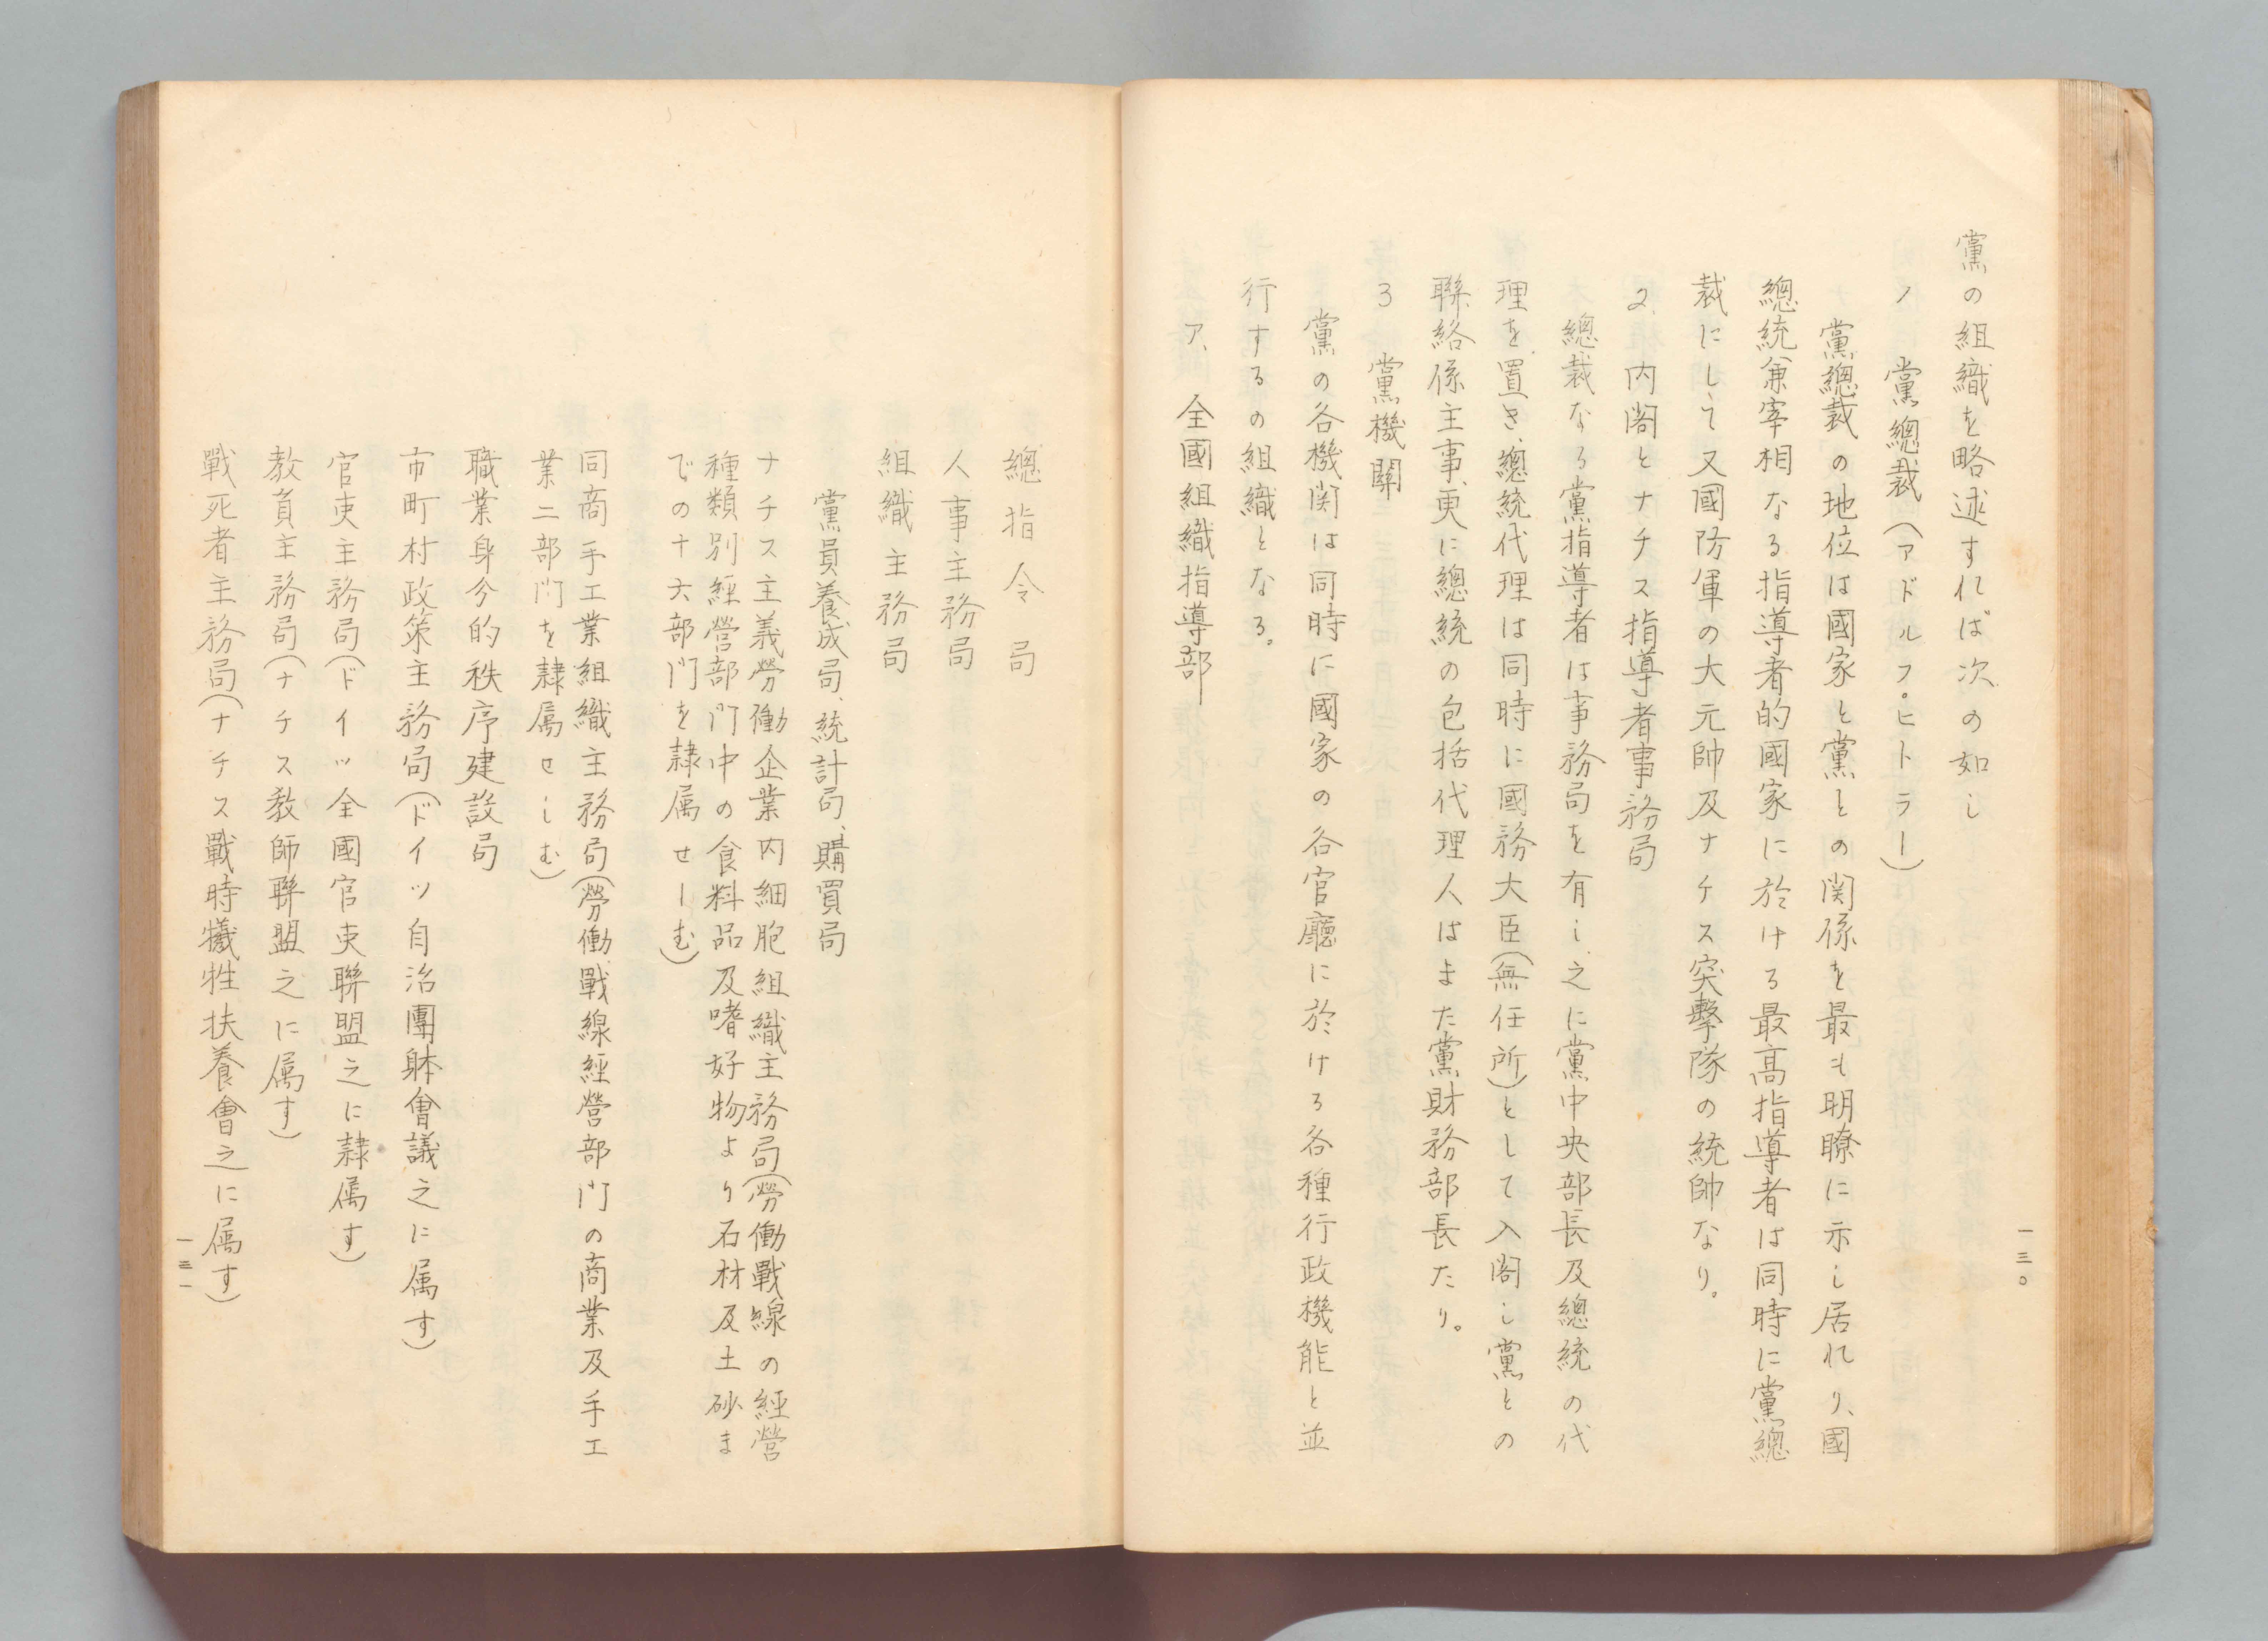 黨の組織を略述すれば次の如し
1 黨總裁(アドルフ・ヒトラー)
黨總裁の地位は國家と黨との関係を最も明瞭に示し居れり、國
總統兼宰相なる指導者的國家に於ける最高指導者は同時に黨總
裁にして又國防軍の大元帥及ナチス突擊隊の統帥なり。
2、内閣とナチス指導者事務局
總裁なる黨指導者は事務局を有し、之に黨中央部長及總統の代
理を置き、總統代理は同時に國務大臣(無任所)として入閣し黨との
聯絡係主事、更に總統の包括代理人はまた黨財務部長たり。
3 黨機關
黨の各機関は同時に國家の各官廳に於ける各種行政機能と並
行するの組織となる。
ア、全國組織指導部
一三〇
總指令局
人事主務局
組織主務局
黨員養成局、統計局、購買局
ナチス主義勞働企業内細胞組織主務局(勞働戰線の經營
種類別經營部門中の食料品及嗜好物より石材及土砂ま
での十六部門を隷属せしむ)
同商手工業組織主務局(勞働戰線經營部門の商業及手工
業二部門を隷属せしむ)
職業身分的秩序建設局
市町村政策主務局(ドイツ自治團躰會議之に属す)
官吏主務局(ドイツ全國官吏聯盟之に隷属す)
教員主務局(ナチス教師聯盟之に属す)
戰死者主務局(ナチス戰時犧牲扶養會之に属す)
一三一